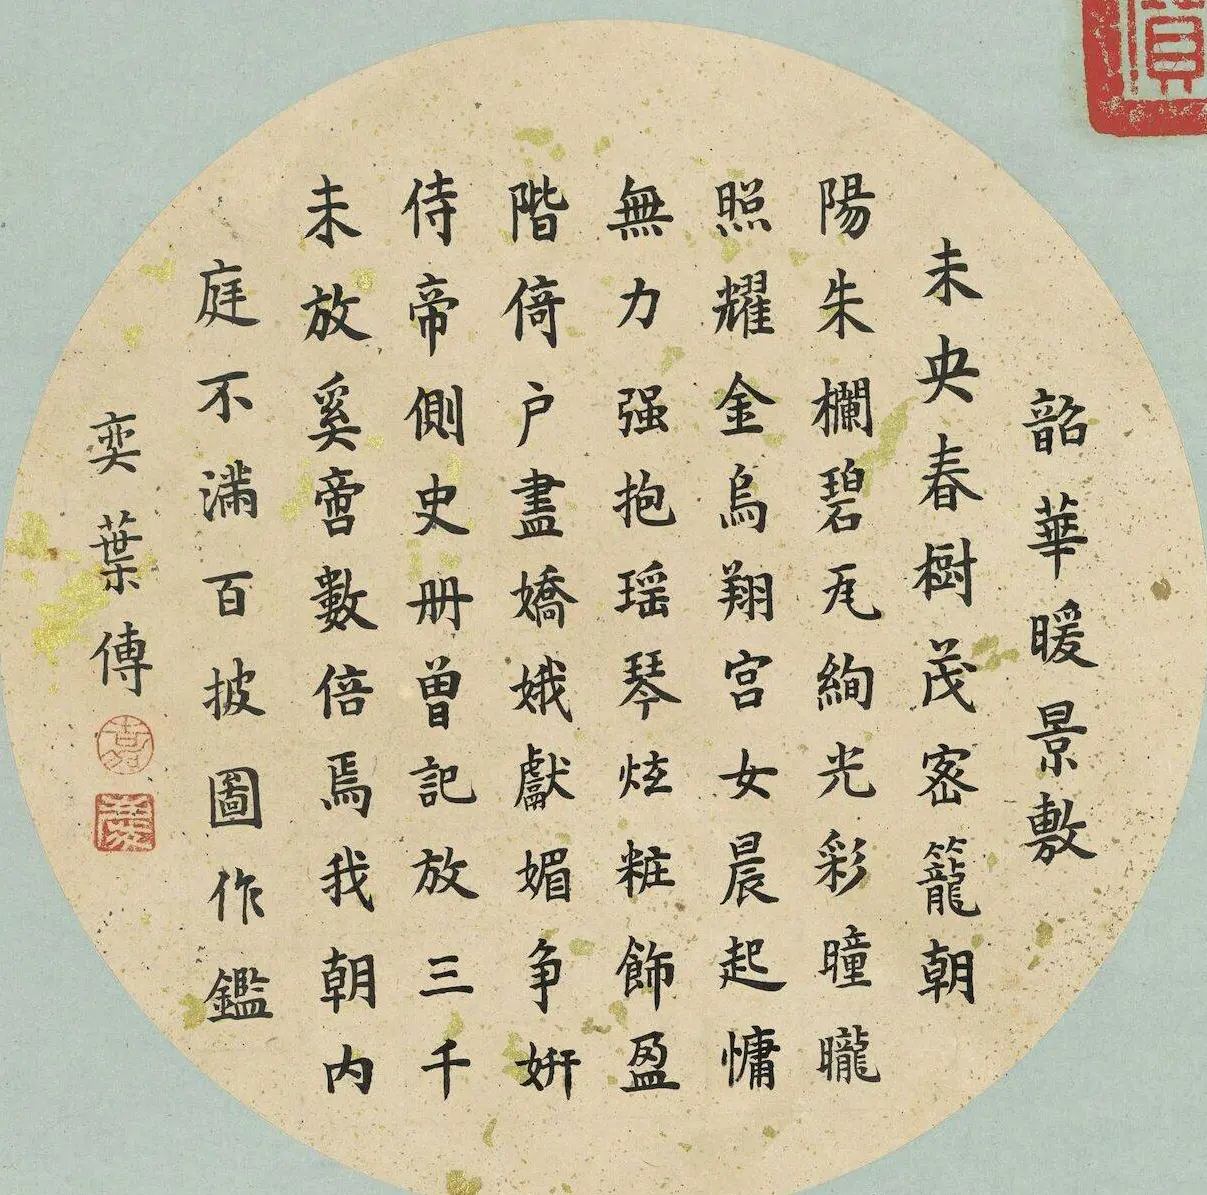 韶華暖景敷
未央春樹茂密籠朝
陽朱欄碧瓦絢光彩曈曨
照耀金烏翔宮女晨起慵
無力强抱瑶琴炫粧飾盈
階倚户盡嬌娥獻媚争妍
侍帝側史册曾記放三千
未放奚啻數倍焉我朝内
庭不滿百披圖作鑑
奕葉傳